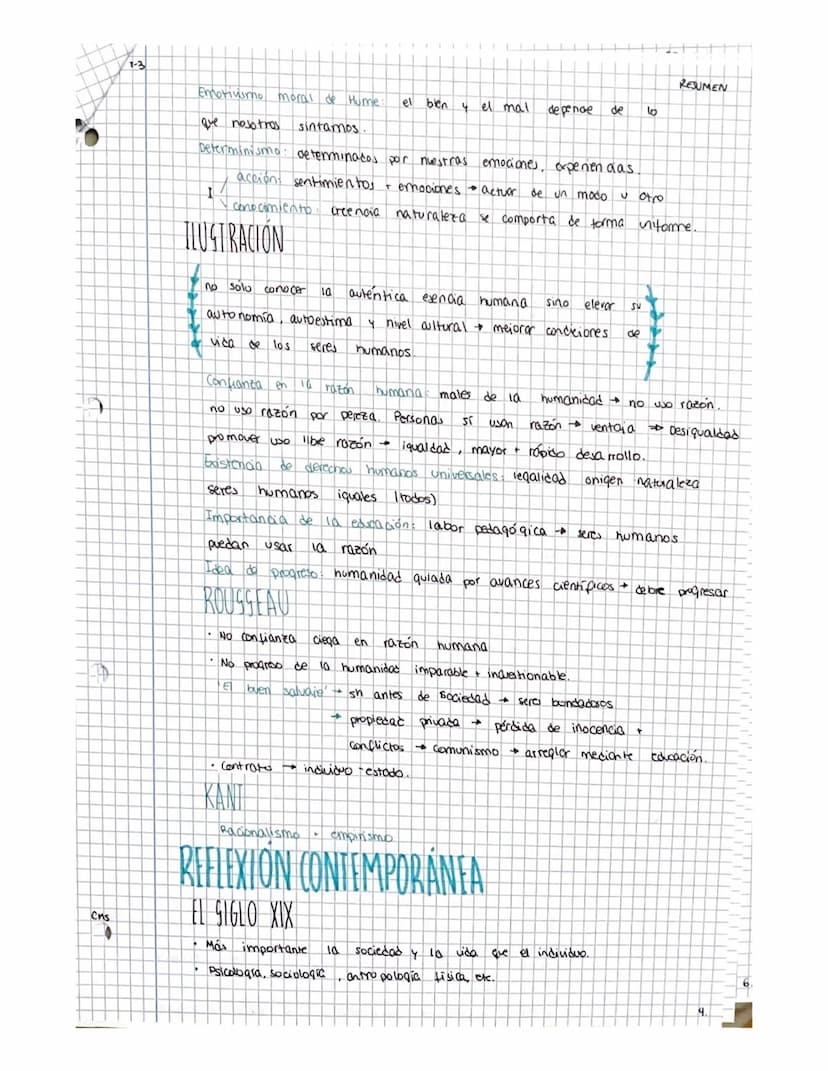 1-3
RESUMEN
Emotivismo moral de Hume: el bien y el mal depende de lo
que nosotros sintamos.
Determinismo: determinados por nuestras emociones, experiencias.
acción: sentimientos + emociones → actuar de un modo u otro
I
conocimiento: creencia naturaleza se comporta de forma uniforme.
ILUSTRACIÓN
no sólo conocer la auténtica esencia humana sino elevar su
autonomía, autoestima y nivel cultural → mejorar condiciones de
vida de los seres humanos.
Confianza en la razón humana: males de la humanidad → no uso razón.
no uso razón por pereza. Personas sí usan razón → ventaja → Desigualdad
promover uso libe razón → igualdad, mayor + rápido desarrollo.
Existencia de derechos humanos universales: legalidad origen naturaleza
seres humanos iguales (todos)
Importancia de la educación: labor pedagógica → seres humanos
puedan usar la razón
Idea de progreso: humanidad guiada por avances científicos → debe progresar
ROUSSEAU
· No confianza ciega en razón humana
· No progreso de la humanidad imparable + incuestionable.
'El buen salvaje' → sh antes de sociedad → seres bondadosos
→ propiedad privada → pérdida de inocencia +
conflictos → comunismo → arreglar mediante educación.
· Contrato → individuo - estado.
KANT
Racionalismo + empirismo
REFLEXIÓN CONTEMPORÁNEA
EL SIGLO XIX
Cms
· Más importante la sociedad y la vida que el individuo.
· Psicología, sociología, antropología física, etc.
6.
4.